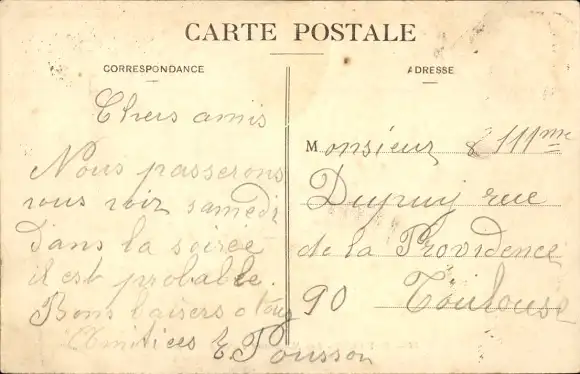 CARTE POSTALE
CORRESPONDANCE
ADRESSE
Chers amis
Nous passerons
vous voir samedi
Dans la soirée
il est probable.
Bons baisers a tous
Amitiées E Pousson
Monsieur & Mme
Dupuy rue
de la Providence
90 Toulouse